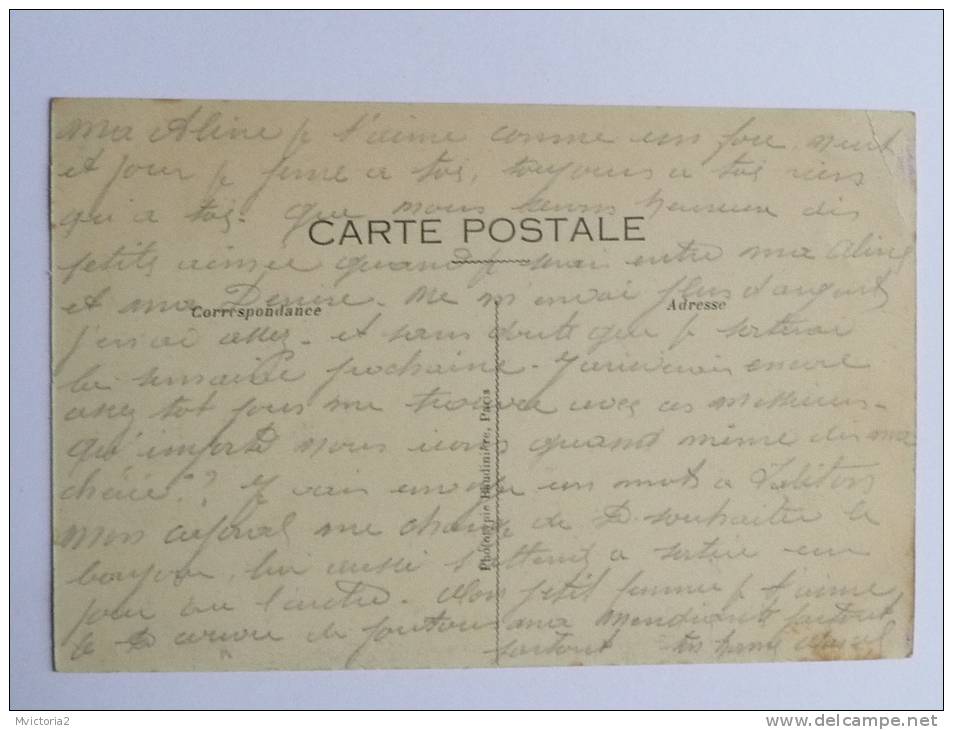 ma Aline je t'aime comme un fou, nuit
et jour je pense a toi, toujours a toi rien
qu'a toi. que nous serons heureux dis
CARTE POSTALE
petite aimée quand je serai entre ma Aline
et ma Denise. Ne m'envoi plus d'argent
Correspondance
Adresse
j'en ai assez. et sans doute que je sortirai
la semaine prochaine. J'arriverai encore
assez tot pour me trouver avec ces
qu'importe nous irons quand même dis ma
chérie?? Je vais envoyer un mots a
Mon caporal me charge de souhaiter le
bonjour, lui aussi s'attend a sortir un
jour ou l'autre. Mon petit femme je t'aime
le de partout ma partout
surtout ton
Phototypie Baudinière, Paris
Mvictoria2
www.delcampe.net